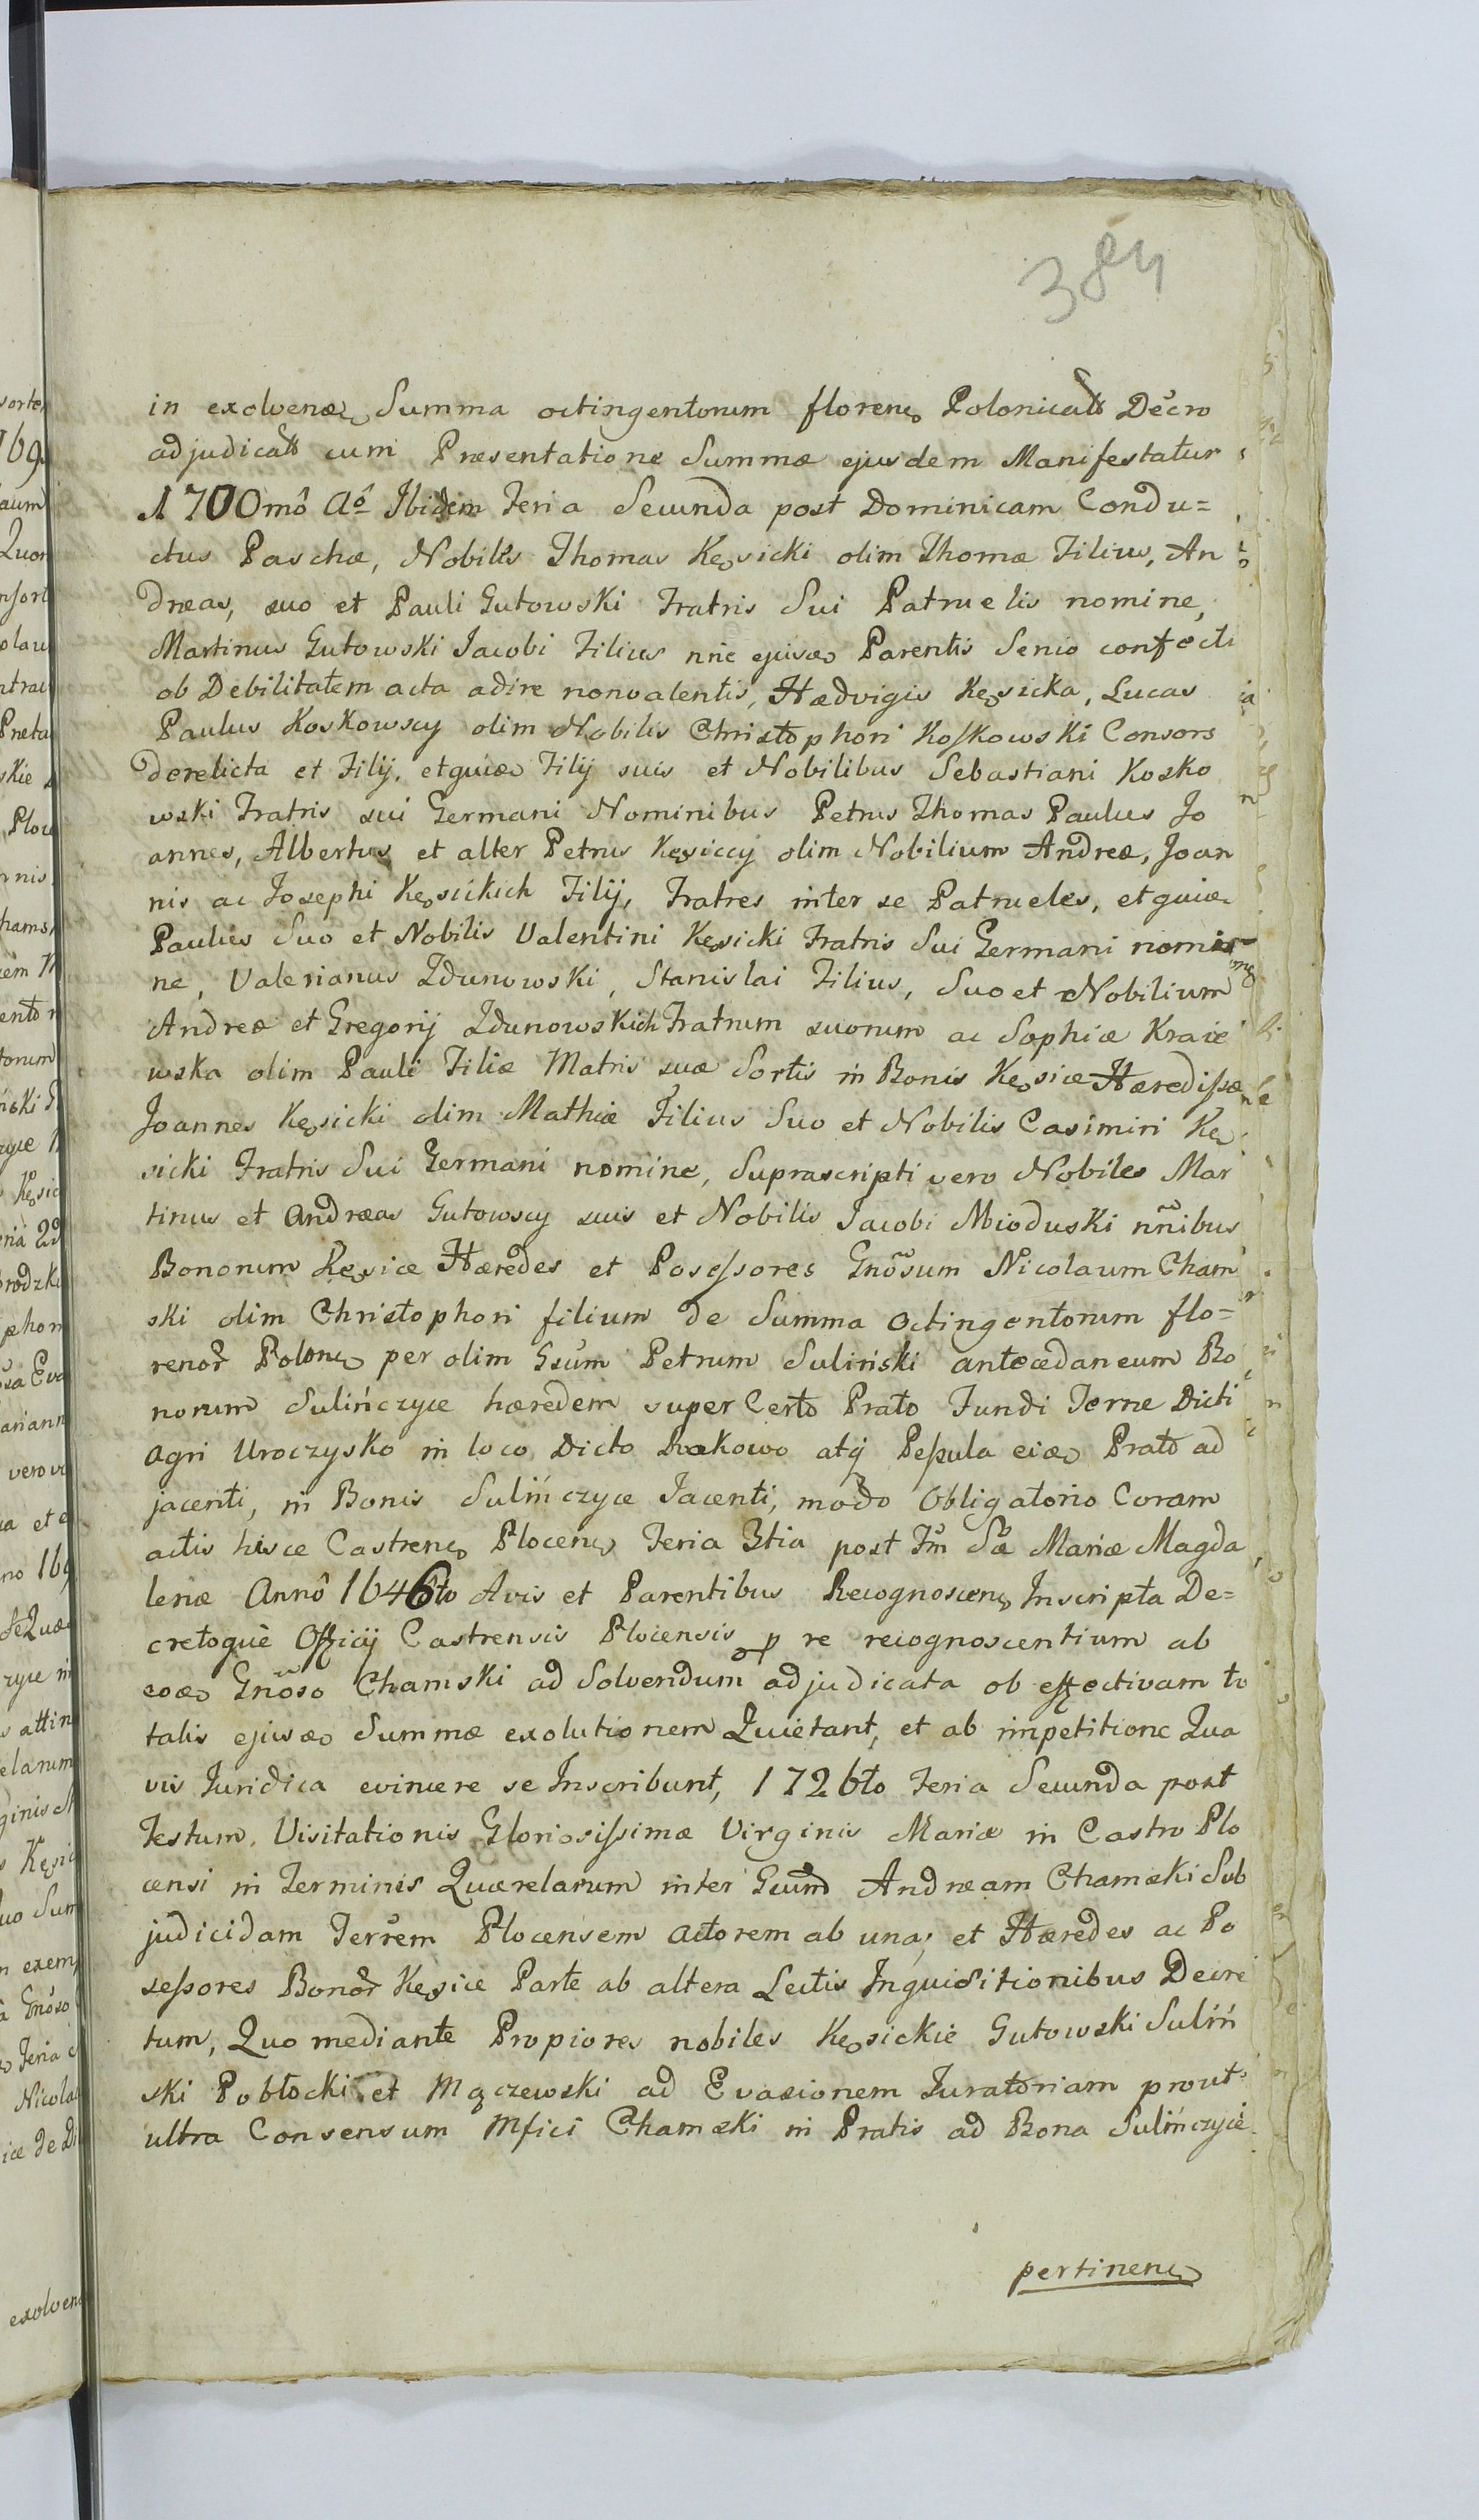 384
in exolvend Summa octingentorum floren Polonicalt Decro
adjudicalt cum Præsentatione Summæ ejusdem Manifestatur
1700mô Aô Ibidem Feria Secunda post Dominicam Condu=
ctus Paschæ, Nobilis Thomas Kęsicki olim Thomæ Filius, An
dreas, suo et Pauli Gutowski Fratris Sui Patruelis nomine,
Martinus Gutowski Jacobi Filius nñe ejusd Parentis Senio confecti
ob Debilitatem acta adire nonvalentis, Hædvigis Kęsicka, Lucas
Paulus Koskowscy olim Nobilis Christophori Koskowski Consors
derelicta et Filij, etquid Filij suis et Nobilibus Sebastiani Kosko
wski Fratris sui Germani Nominibus Petrus Thomas Paulus Jo
annes, Albertus et alter Petrus Kęsiccy olim Nobilium Andreæ, Joan
nis ac Josephi Kęsickich Filij, Fratres inter se Patrueles, etquid
Paulus Suo et Nobilis Valentini Kęsicki Fratris Sui Germani nomi=
ne, Valerianus Zdunowski, Stanislai Filius, Suo et Nobilium
Andreæ et Gregorij Zdunowskich Fratrum suorum ac Sophiæ Kraie
wska olim Pauli Filiæ Matris suæ Sortis in Bonis Kęsice Hæredissæ
Joannes Kęsicki olim Mathiæ Filius Suo et Nobilis Casimiri Kę
sicki Fratris Sui Germani nomine, Suprascripti vero Nobiles Mar
tinus et Andreas Gutowscy suis et Nobilis Jacobi Mioduski nñibus
Bonorum Kęsice Hæredes et Possessores Gnõsum Nicolaum Cham
ski olim Christophori filium de Summa Octingentorum flo=
renor Polon per olim Gsum Petrum Suliński antecedaneum Bo
norum Sulińczyce hæredem super Certo Prato Fundi Terræ Dicti
Agri Uroczysko in loco Dicto Rakowo atq Pessula eid Prato ad
jacenti, in Bonis Sulińczyce Jacenti, modo Obligatorio Coram
actis hisce Castren Plocen Feria 3tia post Fm Sæ Mariæ Magda
lenæ Annô 1646to Avis et Parentibus Recognoscen Inscripta De=
cretoquè Officij Castrensis Plocensis p re recognoscentium ab
eod Gnõso Chamski ad Solvendum adjudicata ob effectivam to
talis ejusd Summæ exolutionem Quietant, et ab impetitione Qua
vis Juridica evincere se Inscribunt, 1726to Feria Secunda post
Festum Visitationis Gloriosissimæ Virginis Mariæ in Castro Plo
censi in Terminis Quærelarum inter Gsum Andream Chamski Sub
judicidam Terrem Plocensem Actorem ab una, et Hæredes ac Po
sessores Bonor Kęsice Parte ab altera Lectis Inquisitionibus Decre
tum, Quo mediante Propiores nobiles Kęsickie Gutowski Suliń
ski Pobłocki et Mączewski ad Evasionem Juratoriam prout
ultra Consensum Mfici Chamski in Pratis ad Bona Sulińczyce
pertinen